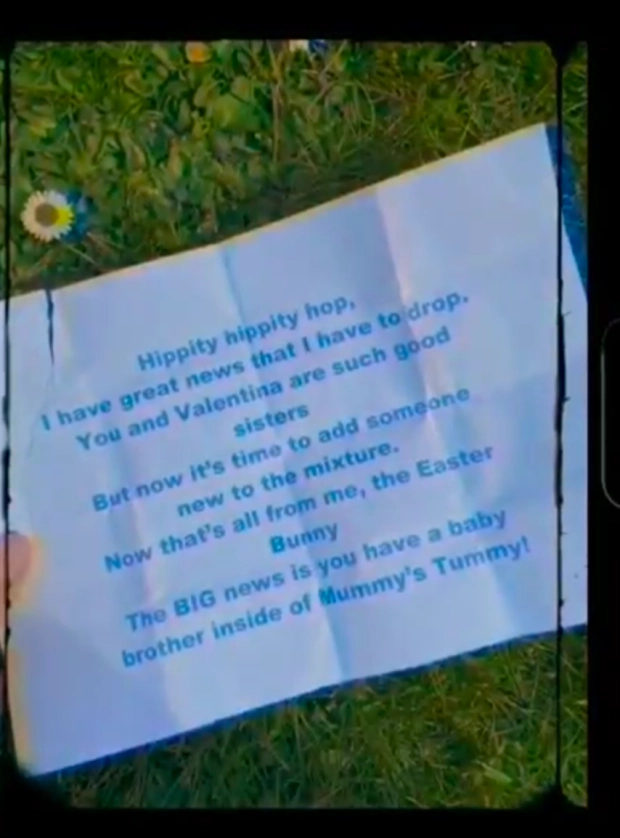 Hippity hippity hop,
I have great news that I have to drop.
You and Valentina are such good
sisters
But now it's time to add someone
new to the mixture.
Now that's all from me, the Easter
Bunny
The BIG news is you have a baby
brother inside of Mummy's Tummy!